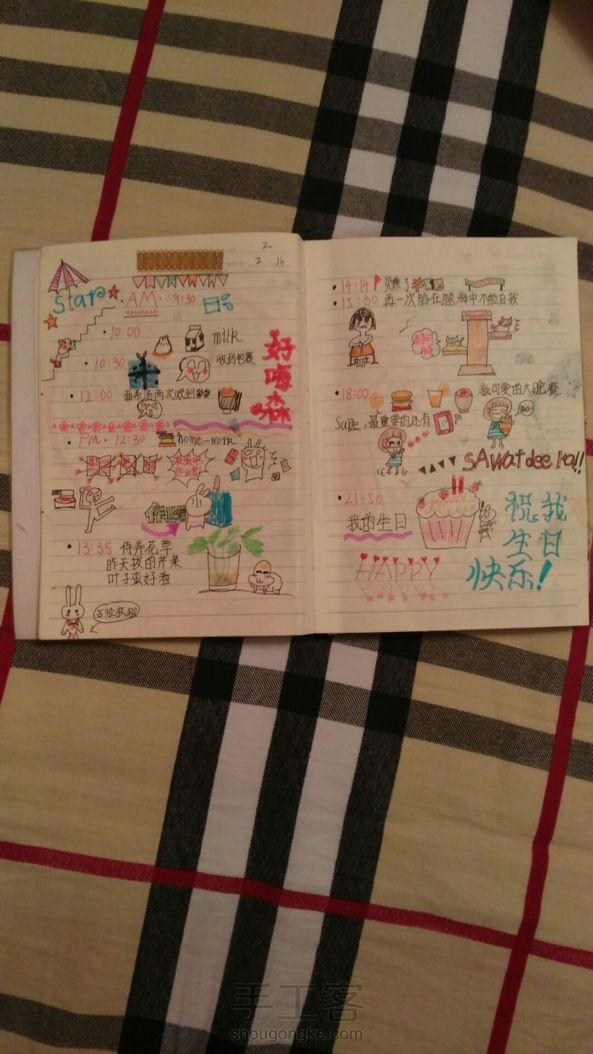 2
2 16
star
AM. 9:30
10:00
milk
10:30
收到包裹
好嗨森
12:00
PM. 12:30
home-work
13:35 侍弄花草
昨天拔的芹菜
叶子蛮好看
14:14 赚了
15:30 再一次陷在题海中不能自拔
18:00
我可爱的大晚餐
最重要的还有
sAwatdee ka!!
21:50
我的生日
HAPPY
祝我
生日
快乐!
手工客
shougongke.com